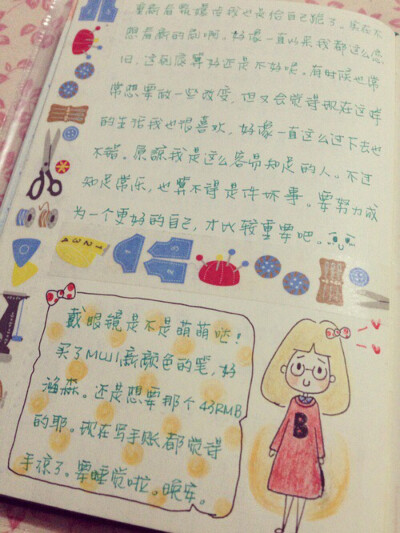 我也是给自己跪了。实在不
想看剧啊,好像一直以来我都这么念
旧,这到底算好还是不好呢。有时候也常
常想要做一些改变,但又会觉得现在这样
的生活我也很喜欢,好像一直这么过下去也
不错。原谅我是这么容易知足的人。不过
知足常乐,也算不得是件坏事。要努力成
为一个更好的自己,才比较重要吧..
1 2 3 4
戴眼镜是不是萌萌哒!
买了MUJI新颜色的笔,好
森。还是想要那个43RMB
的耶。现在写手账都觉得
手凉了。要睡觉啦。晚安。
B